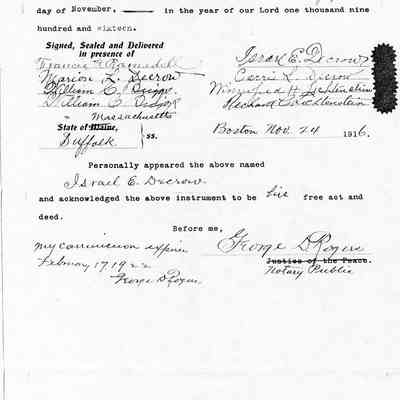 day of November, —— in the year of our Lord one thousand nine
hundred and sixteen.
Signed, Sealed and Delivered
in presence of
Israel E. Decrow
Marion L. Decrow
Carrie L. Decrow
William C. Briggs
Winnifred H. Lichtenstein
William C.
Richard Lichtenstein
" Massachusetts
State of Maine,
Suffolk } ss.
Boston Nov. 24 1916.
Personally appeared the above named
Israel E. Decrow
and acknowledged the above instrument to be his free act and
deed.
Before me,
My commission expires
February 17, 1922
George D Rogers
George D Rogers
Justice of the Peace.
Notary Public